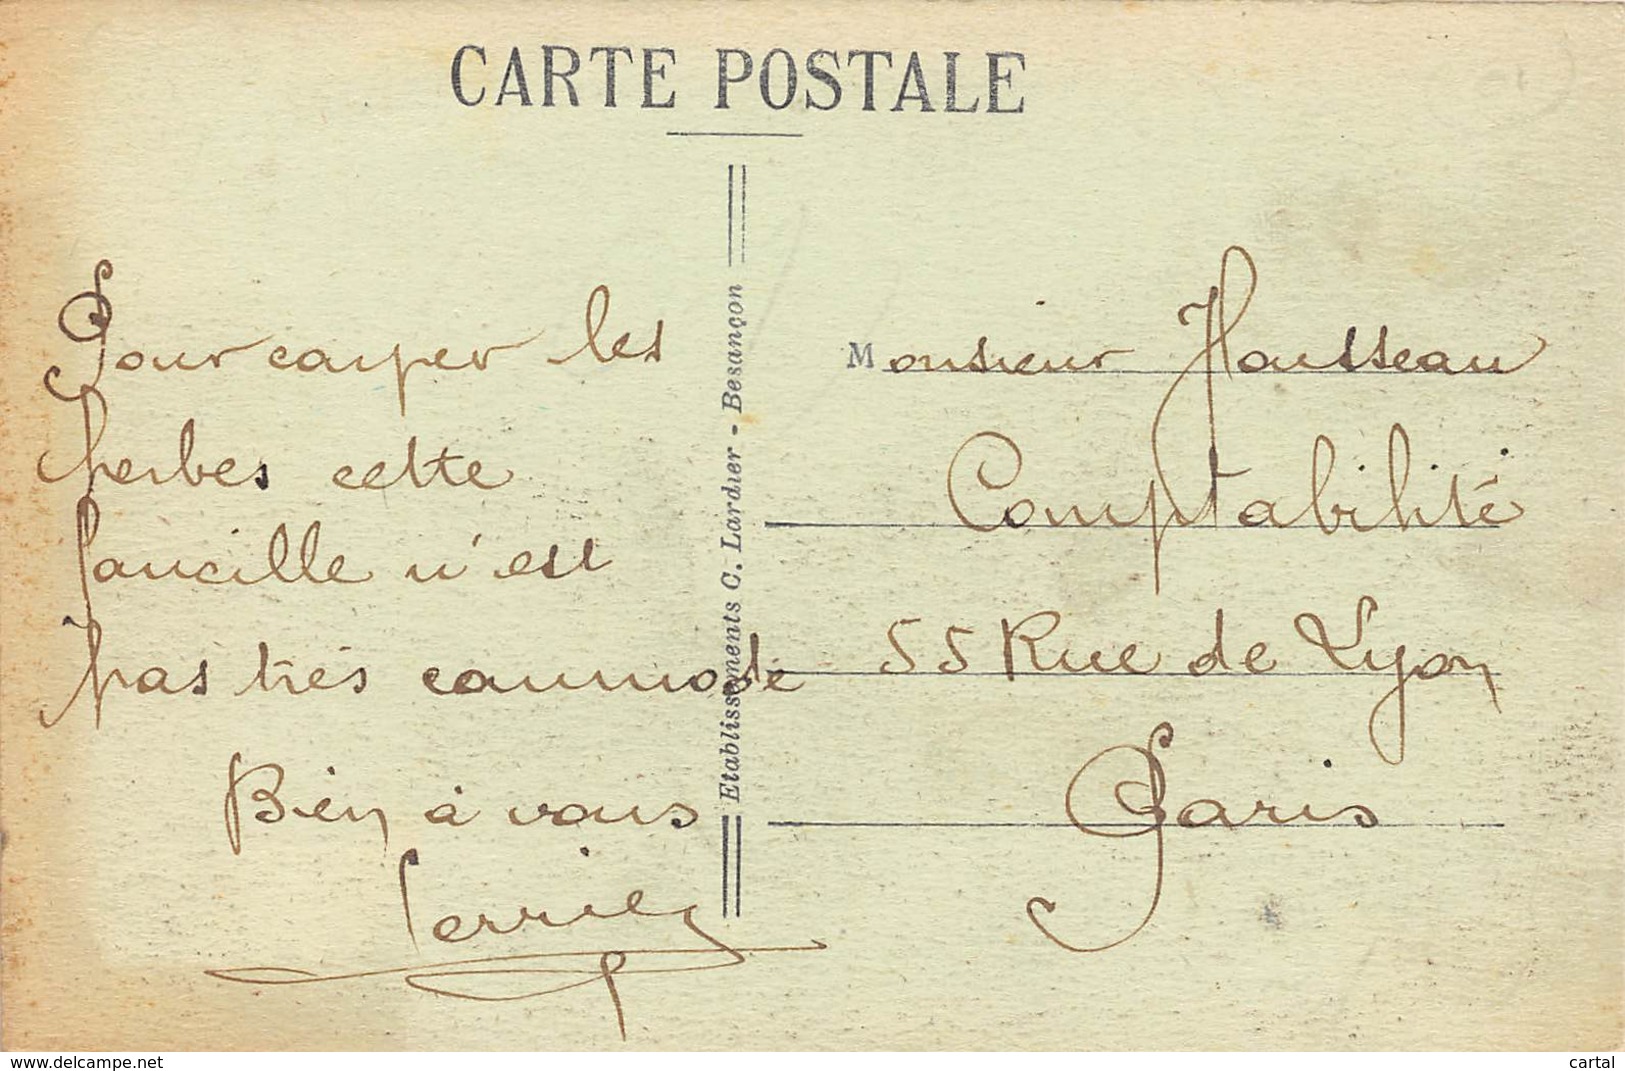 CARTE POSTALE
Pour couper les
herbes cette
faucille n'est
pas très commode
Bien à vous
Etablissements C. Lardier - Besançon
Monsieur Housseau
Comptabilité
55 Rue de Lyon
Paris
www.delcampe.net
cartal